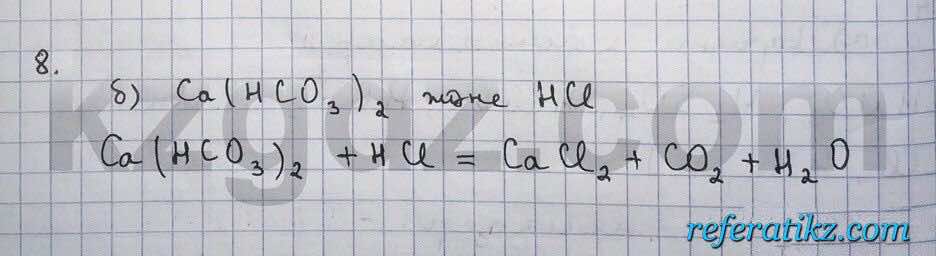 8.
б) Ca(HCO₃)₂ және HCl
Ca(HCO₃)₂ + HCl = CaCl₂ + CO₂ + H₂O
kzgdz.com
referatikz.com